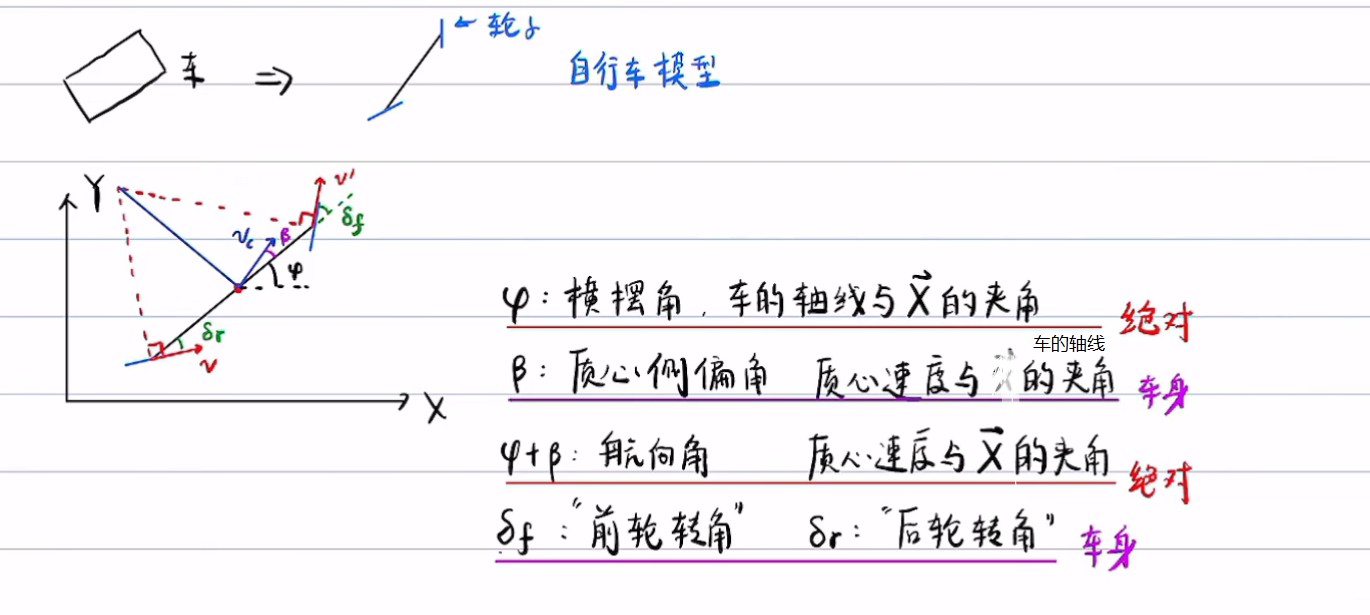 车 ⇒ ← 轮子
自行车模型
Y
v'
δf
v_c β
φ
δr
v
X
φ: 横摆角, 车的轴线与X⃗的夹角 绝对
车的轴线
β: 质心侧偏角 质心速度与 的夹角 车身
φ+β: 航向角 质心速度与X⃗的夹角 绝对
δf: "前轮转角" δr: "后轮转角" 车身